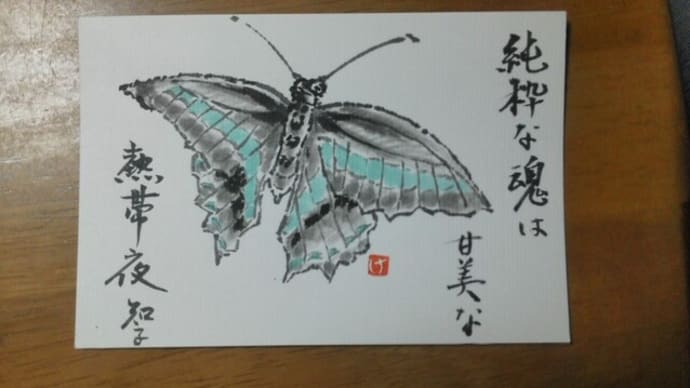 純粋な魂は
甘美な
熱帯夜 智子
け